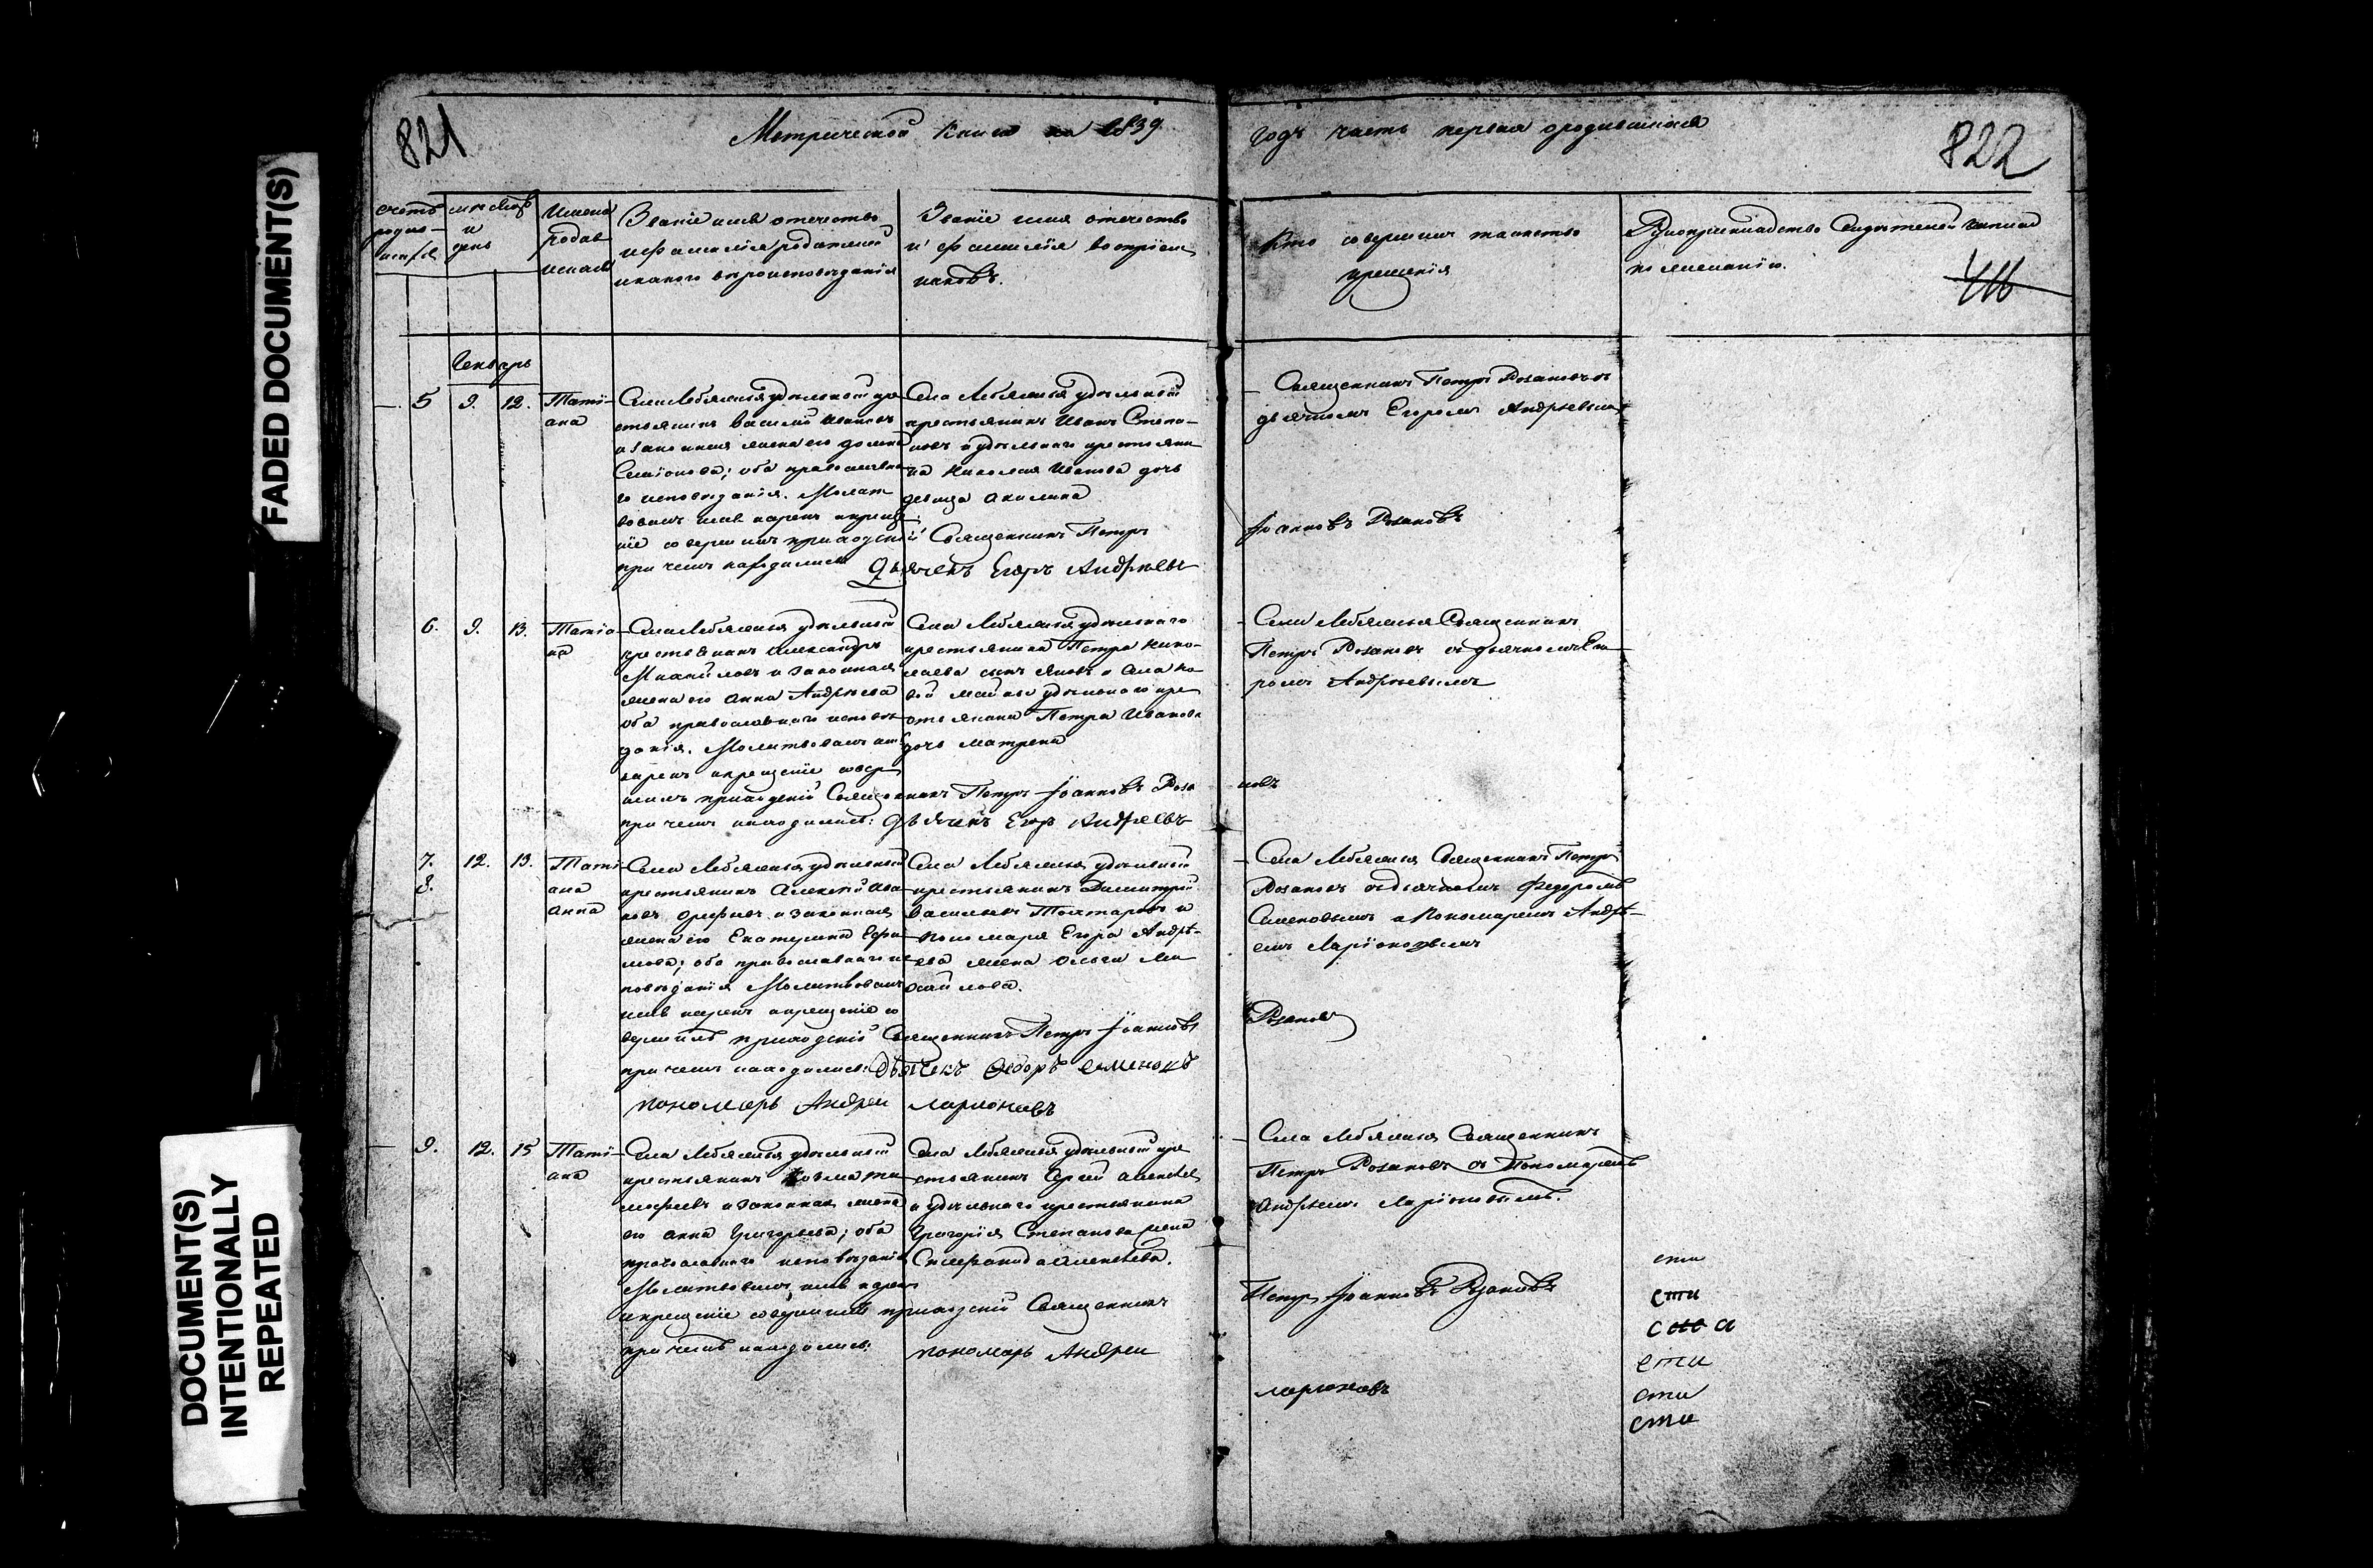 FADED DOCUMENT(S)
DOCUMENT(S)
INTENTIONALLY
REPEATED
821
Метрической книги на 1839
годъ часть первая о родившихся
822
416
счетъ
родив-
шихся
месяцъ
и
день
Имена
родив
шихся
Званіе имя отечество
и фамилія родителей
и какого вероисповеданія
Званіе имя отечество
и фамилія воспріем
никовъ.
Кто совершилъ таинство
крещенія
Рукоприкладство свидетелей записи
по желанію.
Генварь
5
9.
12.
Таті-
ана
Села Лебяжья удельной кре
стьянинъ Василій Ивановъ
и законная жена его Домна
Семіонова; оба православна
го исповеданія. Молит
вовалъ имя нарекъ и креще
ніе совершилъ приходскій Священникъ Петръ
Іоанновъ Розановъ
при чемъ находились Дьячекъ Егоръ Андреевъ
Села Лебяжья удельной
крестьянинъ Иванъ Степа-
новъ и удельнаго крестьяни
на Николая Иванова дочь
девица Акилина
Священникъ Петръ Розановъ съ
дьячкомъ Егоромъ Андреевымъ
6.
9.
13.
Татіа
на
Села Лебяжья удельный
крестьянинъ Александръ
Михайловъ и законная
жена его Анна Андреева
оба православнаго испове
данія. Молитвовалъ имя
нарекъ и крещеніе совер
шилъ приходскій Священникъ Петръ Іоанновъ Роза
новъ
при чемъ находились: Дьячекъ Егоръ Андреевъ
Села Лебяжья удельнаго
крестьянина Петра Нико-
лаева сынъ Яковъ и села Но
вой Майны удельнаго кре
стьянина Петра Иванова
дочь Матрена
Села Лебяжья Священникъ
Петръ Розановъ съ дьячкомъ Его
ромъ Андреевымъ
7.
8.
12.
13.
Таті
ана
Анна
Села Лебяжья удельный
крестьянинъ Алексей Ива
новъ Орефьевъ и законная
жена его Екатерина Ефи
мова; оба православнаго ис
поведанія Молитвовалъ
имя нарекъ и крещеніе со
вершилъ приходскій Священникъ Петръ Іоанновъ
Розановъ
при чемъ находились: Дьячекъ Федоръ Семеновъ
пономарь Андреи Ларионовъ
Села Лебяжья удельный
крестьянинъ Димитрій
Васильевъ Толтаровъ и
пономаря Егора Андре-
ева жена Ольга Ми
хайлова.
Села Лебяжья Священникъ Петръ
Розановъ съ дьячкомъ Федоромъ
Семеновымъ и Пономаремъ Андре-
емъ Ларіоновымъ
9.
12.
15
Таті-
ана
Села Лебяжья удельный
крестьянинъ Козма Ти
мофеевъ и законная жена
его Анна Григорьева; оба
православнаго исповеданія
Молитвовалъ имя нарекъ
и крещеніе совершилъ приходскій Священникъ
Петръ Іоанновъ Розановъ
при чемъ находились: пономарь Андреи
Ларионовъ
Села Лебяжья удельный кре
стьянинъ Сергей Алексеев
и удельнаго крестьянина
Григорія Степанова жена
Степанида Алексеева.
Села Лебяжья Священникъ
Петръ Розановъ съ Пономаремъ
Андреемъ Ларіоновымъ.
сти
сти
сти
сти
сти